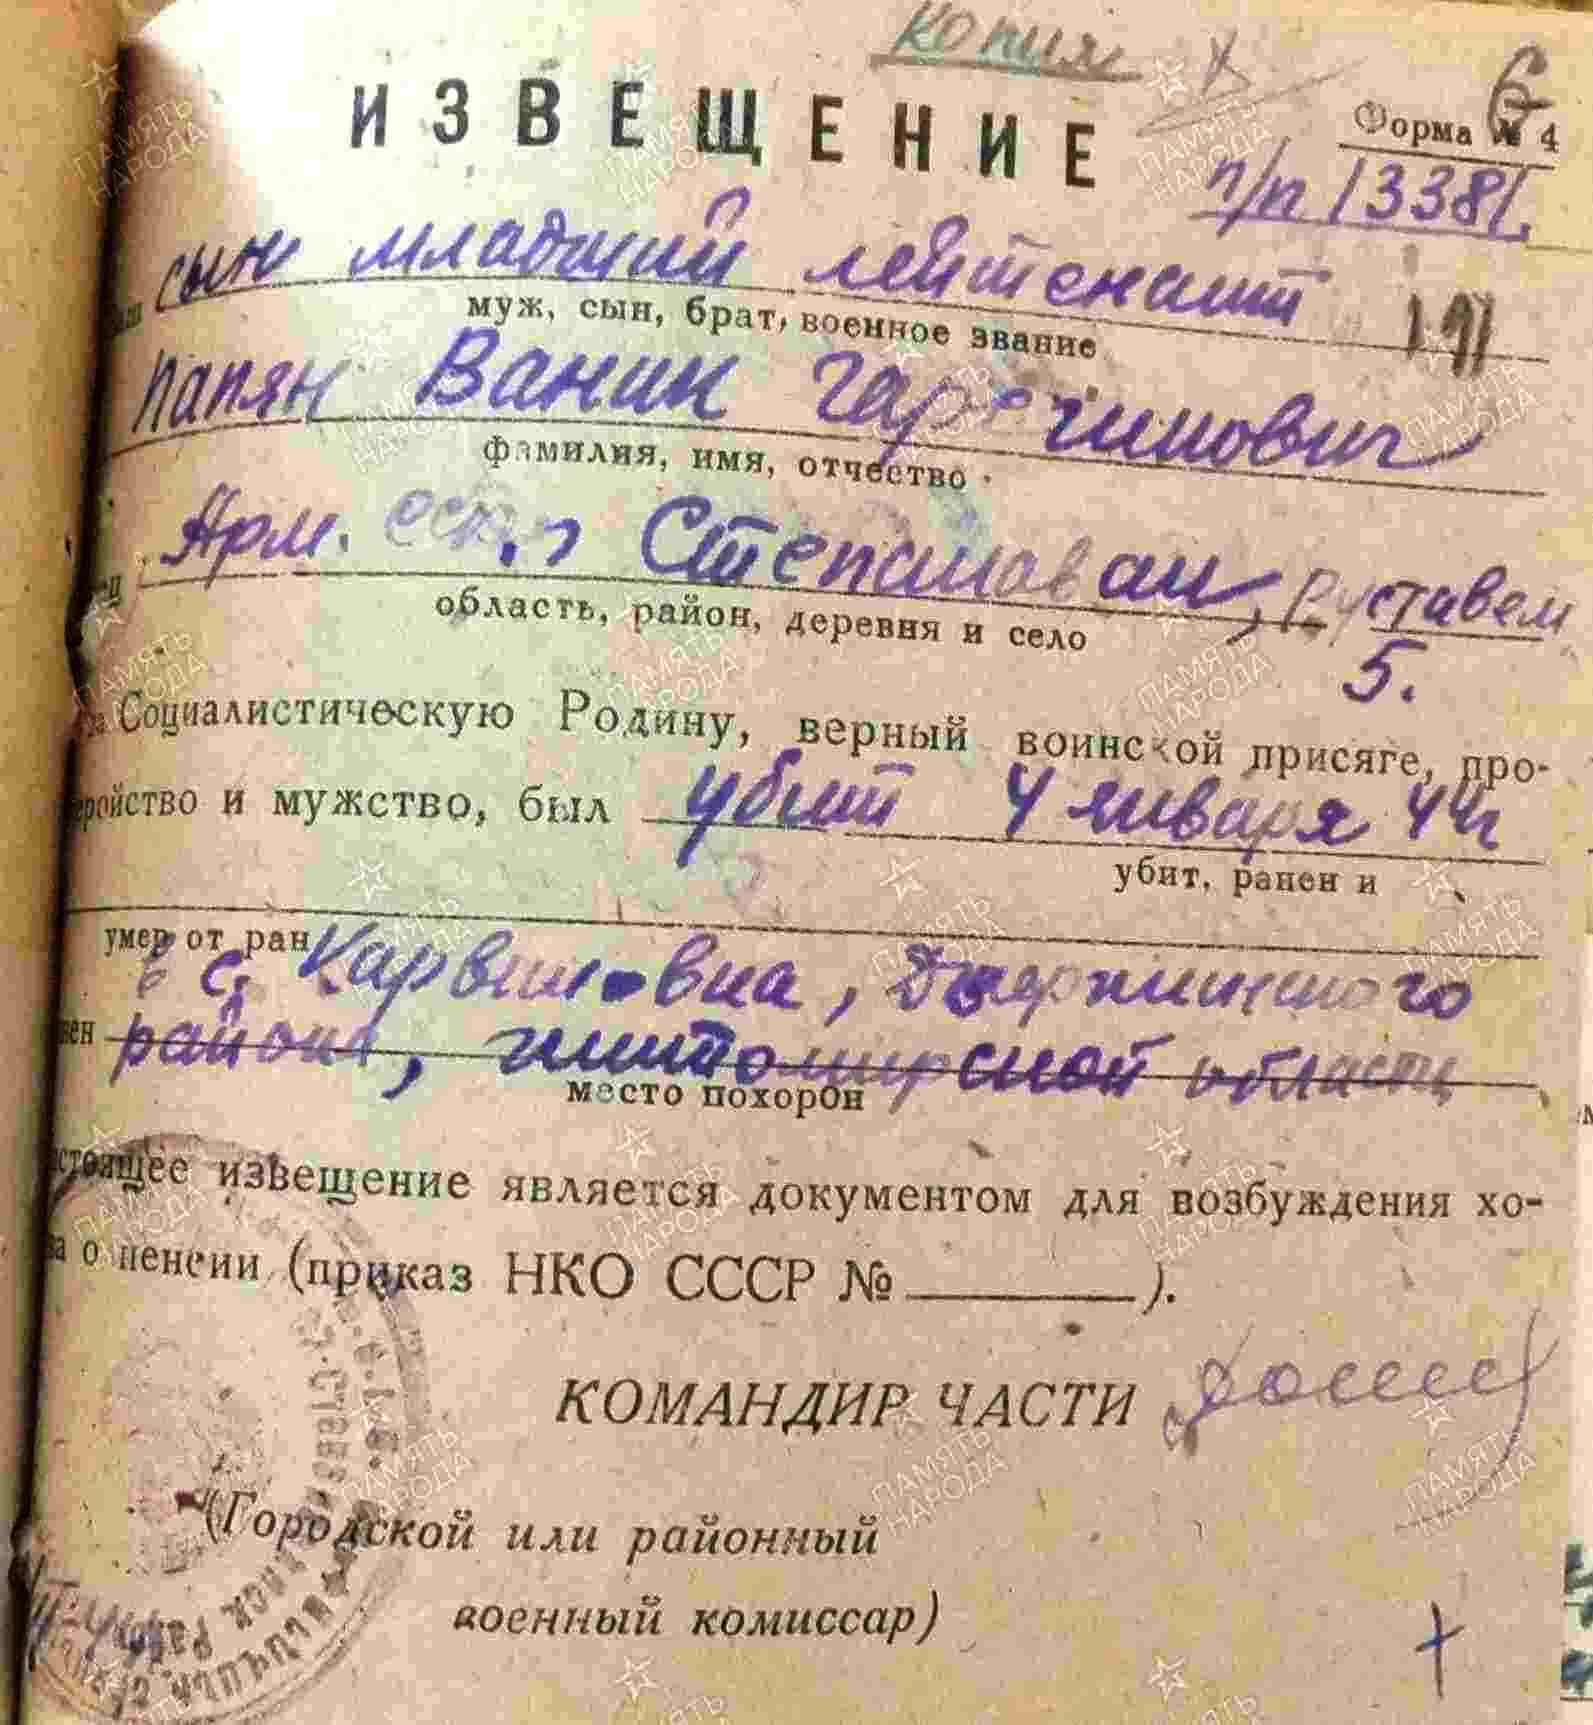 копия
6
ИЗВЕЩЕНИЕ
Форма № 4
п/п 13381.
сын младший лейтенант
191
муж, сын, брат, военное звание
Папян Ваник Гарегинович
фамилия, имя, отчество
Арм. сср., Степанован, Руставели
область, район, деревня и село
5.
Социалистическую Родину, верный воинской присяге, про-
ройство и мужство, был убит 4 января 44г
убит, ранен и
умер от ран
в с. Карвиновка, Дзержинского
нен района, житомирской области
место похорон
стоящее извещение является документом для возбуждения хо-
ва о пенсии (приказ НКО СССР №______).
КОМАНДИР ЧАСТИ
(Городской или районный
военный комиссар)
ПАМЯТЬ НАРОДА